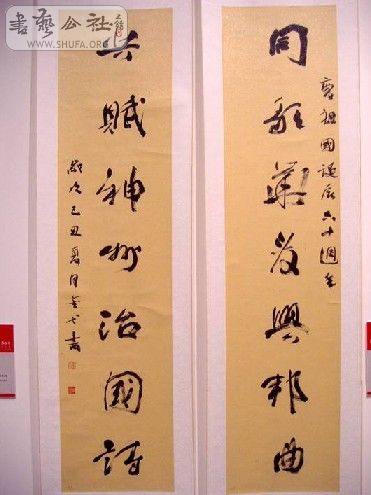 書藝公社
WWW.SHUFA.ORG
慶祖國誕辰六十週年
同華夏興邦曲
共賦神州治國詩
歲次己丑夏月書